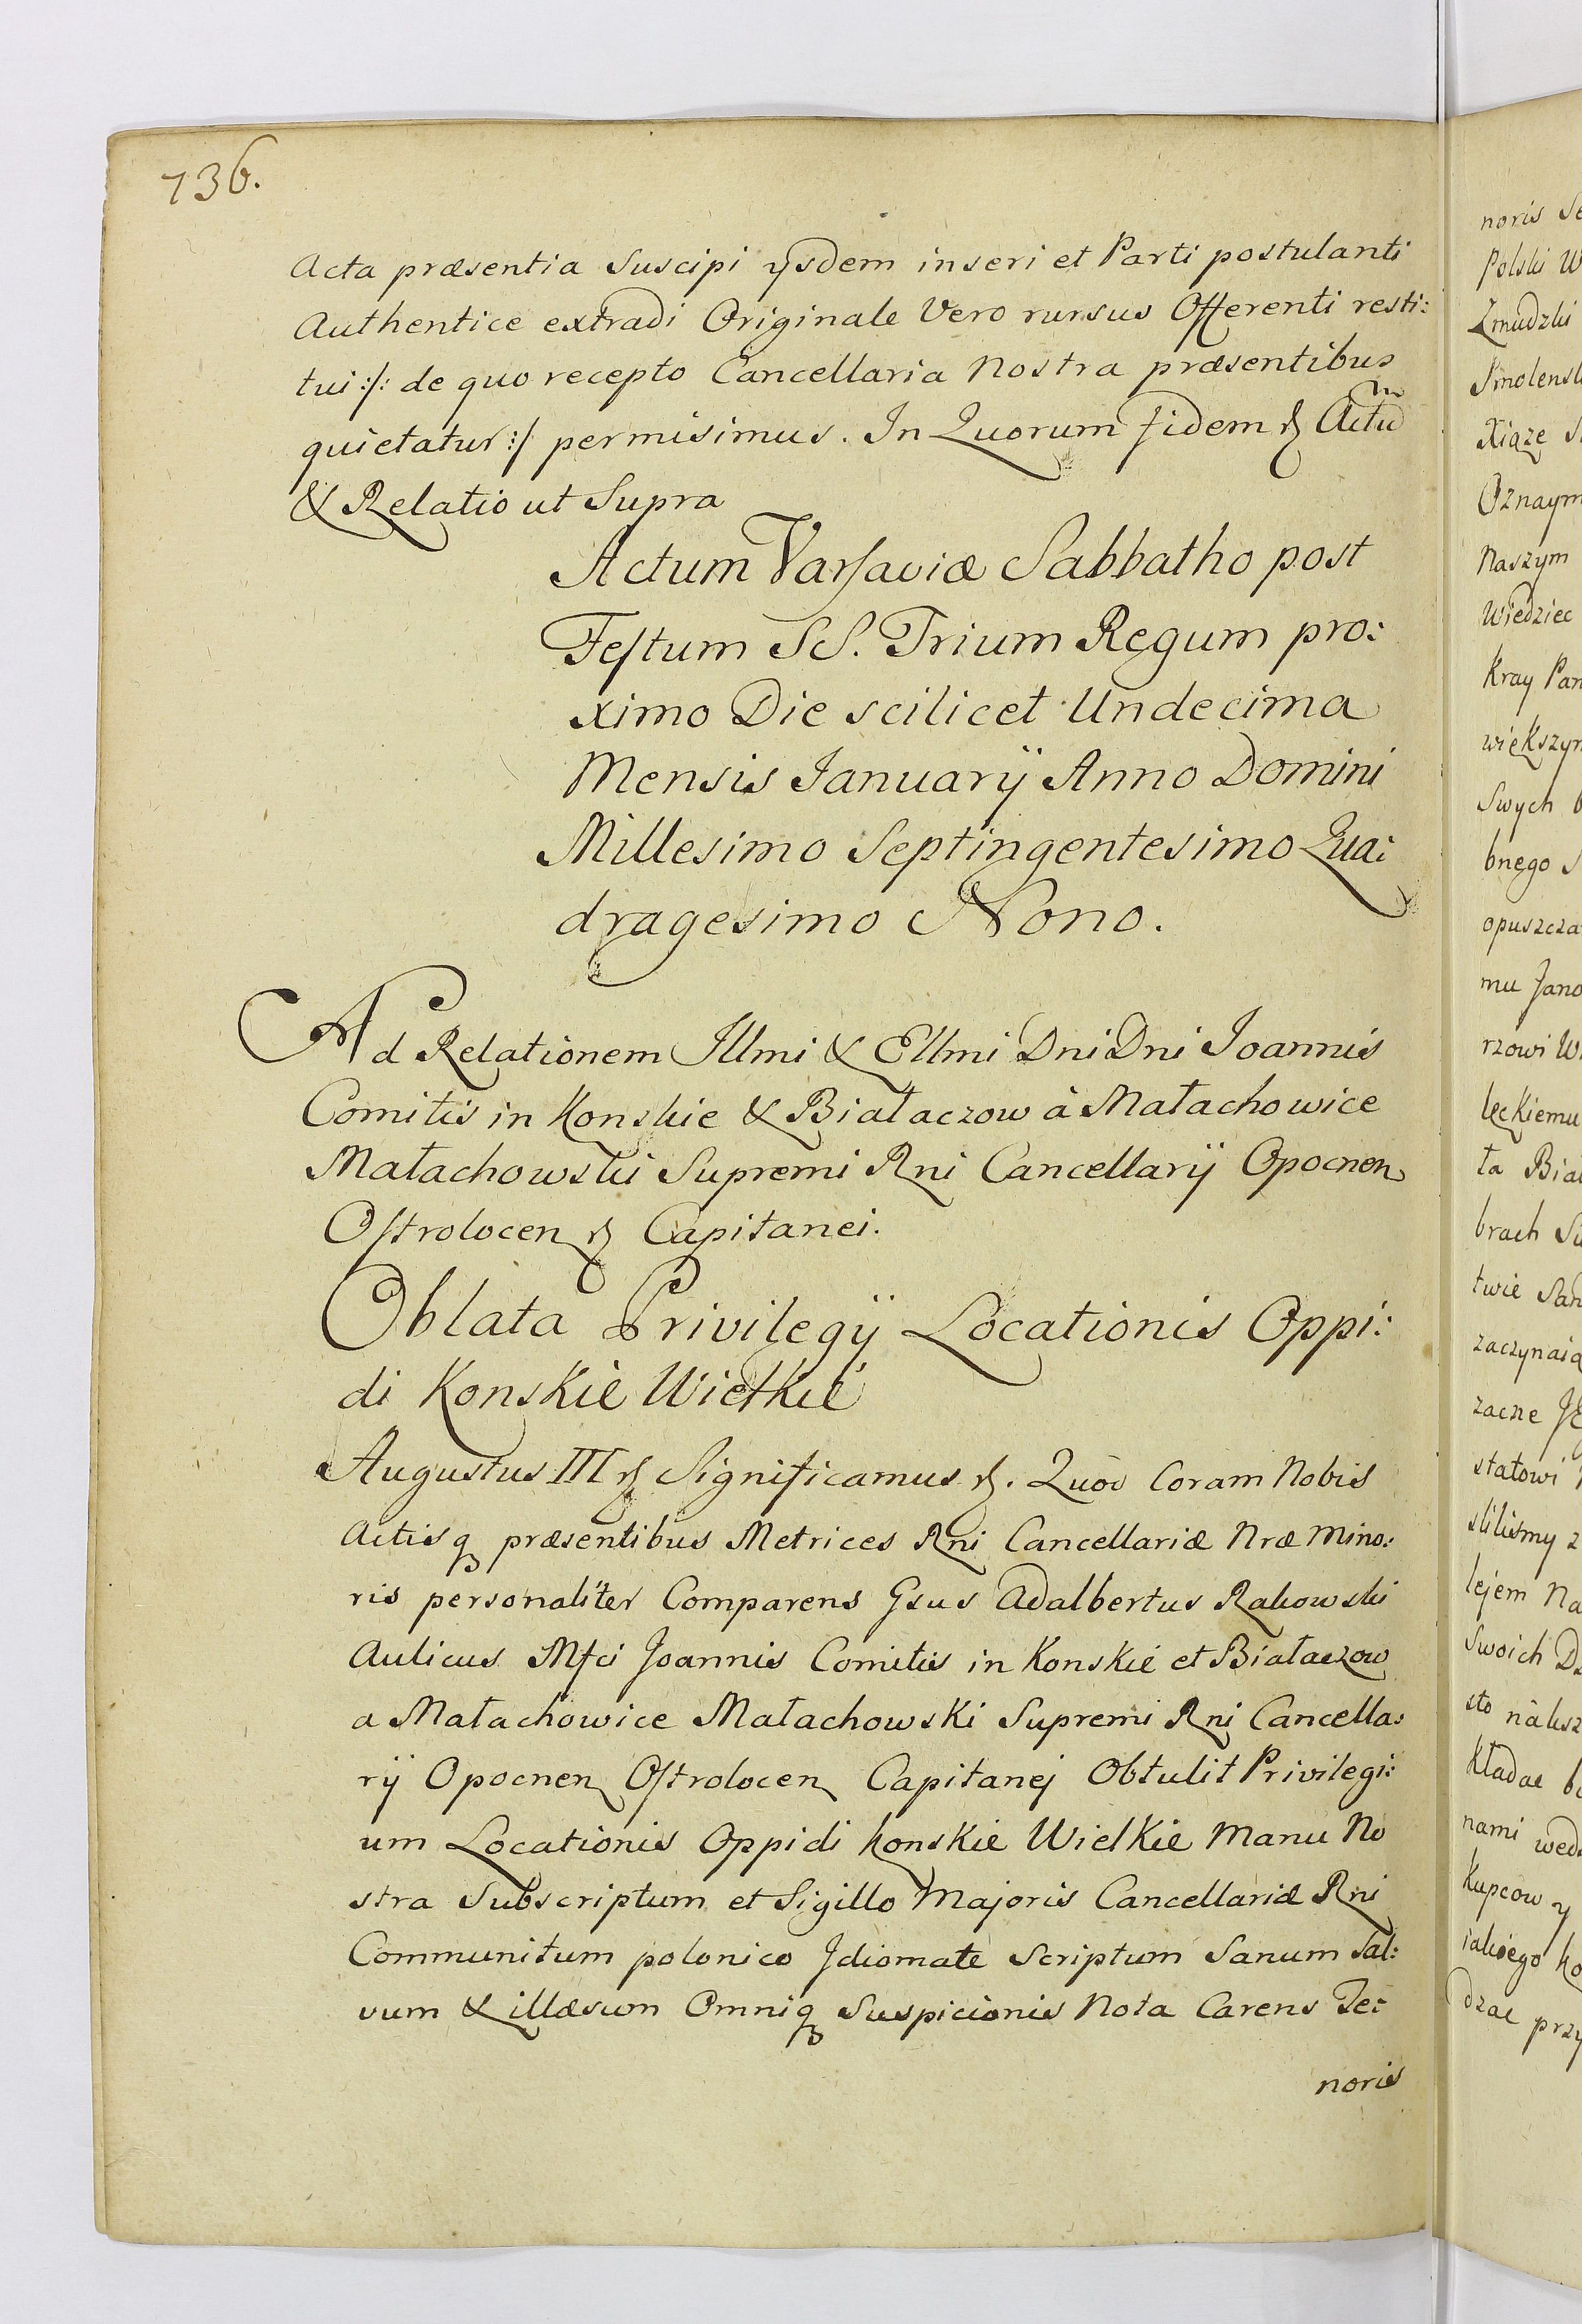 136.
Acta præsentia Suscipi ysdem inseri et Parti postulanti
Authentice extradi Originale Vero rursus Offerenti resti:
tui :/: de quo recepto Cancellaria Nostra præsentibus
quietatur :/ permisimus. In Quorum fidem Actū
& Relatio ut Supra
Actum Varsaviæ Sabbatho post
Festum SS. Trium Regum pro:
ximo Die scilicet Undecima
Mensis Januarij Anno Domini
Millesimo Septingentesimo Qua:
dragesimo Nono.
Ad Relationem Illmi & Ellmi Dni Dni Joannis
Comitis in Konskie & Białaczow à Małachowice
Małachowski Supremi Rni Cancellarij Opocnen
Ostrolocen Capitanei.
Oblata Privilegij Locationis Oppi:
di Konskie Wielkie
Augustus III Significamus. Quod Coram Nobis
Actisq præsentibus Metrices Rni Cancellariæ Nræ Mino:
ris personaliter Comparens Gsus Adalbertus Rakowski
Aulicus Mfci Joannis Comitis in Konskie et Białaczow
a Małachowice Małachowski Supremi Rni Cancella:
rij Opocnen Ostrolocen Capitanej Obtulit Privilegi:
um Locationis Oppidi Konskie Wielkie Manu No
stra Subscriptum et Sigillo Majoris Cancellariæ Rni
Communitum polonico Jdiomate Scriptum Sanum Sal:
vum & illæsum Omniq Suspicionis Nota Carens Te:
noris
noris Se
Polski W
Zmudzki
Smolensk
Xiąze S
Oznaym
Naszym
Wiedziec
Kray Pan
większym
Swych
bnego S
opuszcza
mu Jano
rzowi W
leckiemu
ta Biał
brach Sw
twie San
zaczynaią
zacne
statowi
slilismy z
lejem Na
Swoich Dz
sto
Kładac
nami wed
Kupcow y
iakiego ko
dzac przy